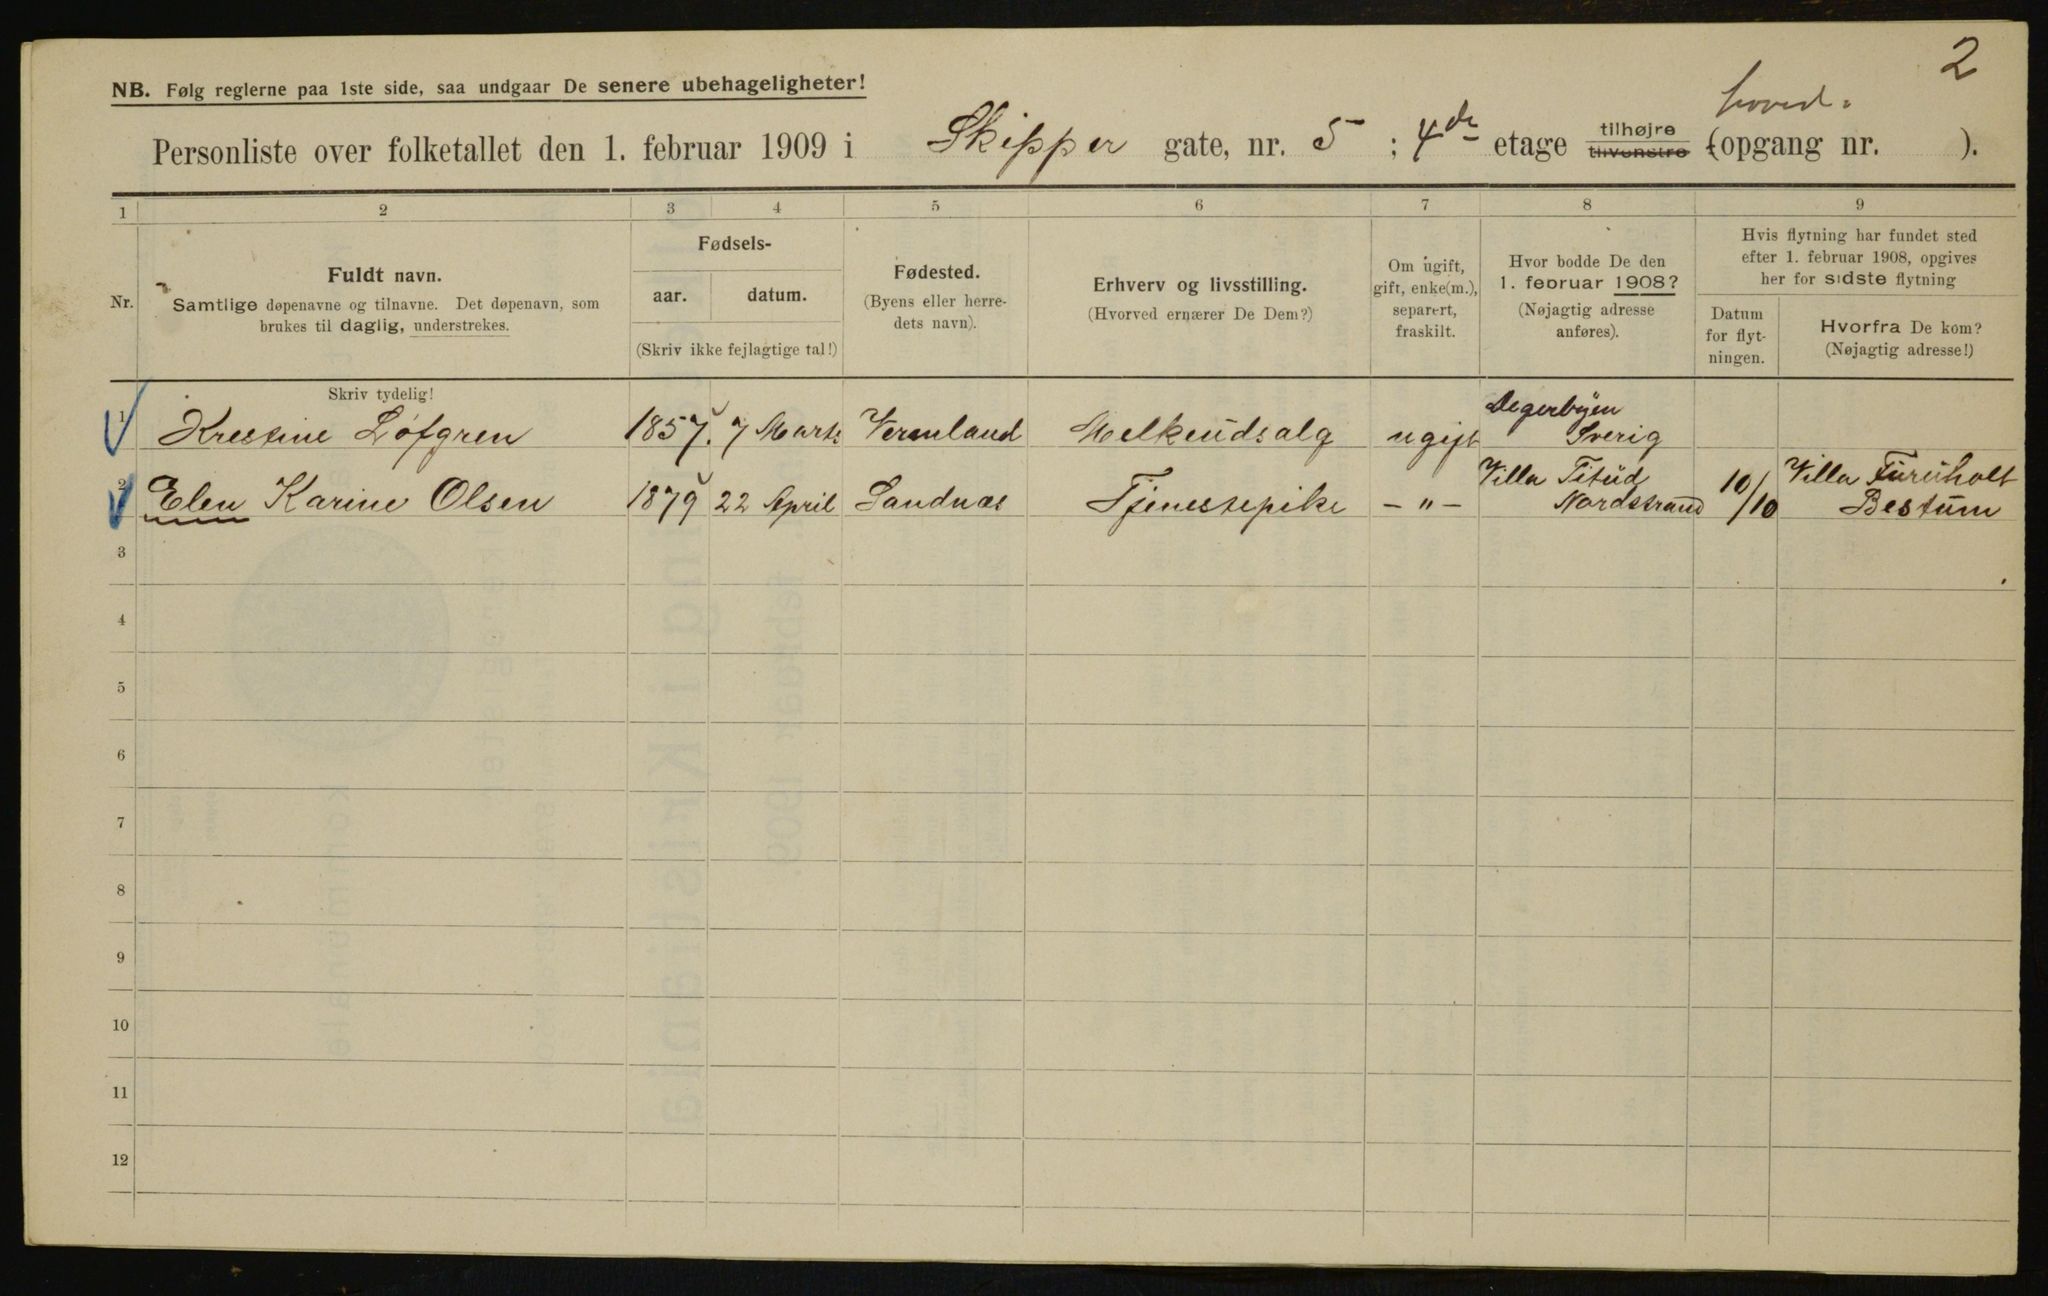 2
NB. Følg reglerne paa 1ste side, saa undgaar De senere ubehageligheter!
hoved-
Personliste over folketallet den 1. februar 1909 i Skipper gate, nr. 5 ; 4de etage tilhøjre tilvenstre (opgang nr. ).
1 2 3 4 5 6 7 8 9
Nr.
Fuldt navn.
Samtlige døpenavne og tilnavne. Det døpenavn, som
brukes til daglig, understrekes.
Fødsels-
aar. datum.
(Skriv ikke fejlagtige tal!)
Fødested.
(Byens eller herre-
dets navn).
Erhverv og livsstilling.
(Hvorved ernærer De Dem?)
Om ugift,
gift, enke(m.),
separert,
fraskilt.
Hvor bodde De den
1. februar 1908?
(Nøjagtig adresse
anføres).
Hvis flytning har fundet sted
efter 1. februar 1908, opgives
her for sidste flytning
Datum
for flyt-
ningen.
Hvorfra De kom?
(Nøjagtig adresse!)
Skriv tydelig!
1 Krestine Löfgren 1857. 7 Marts Vermland Melkeudsalg ugift Degerbyen
Sverig
2 Elen Karine Olsen 1879 22 April Sandnæs Tjenestepike — " — Villa Titud
Nordstrand 10/10 Villa Furuholt
Bestum
3
4
5
6
7
8
9
10
11
12